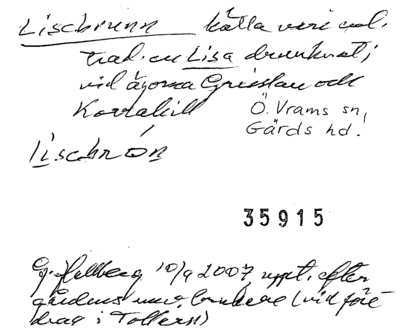 Lisebrunn källa vari enl.
trad. en Lisa drunknat;
vid ägorna Grislan och
Korrakill Ö. Vrams sn,
Gärds hd.
lisebrón
35915
G. Hellberg 10/9 2007, uppt. efter
gårdens nuv. (vid före
drag i Tollarp)